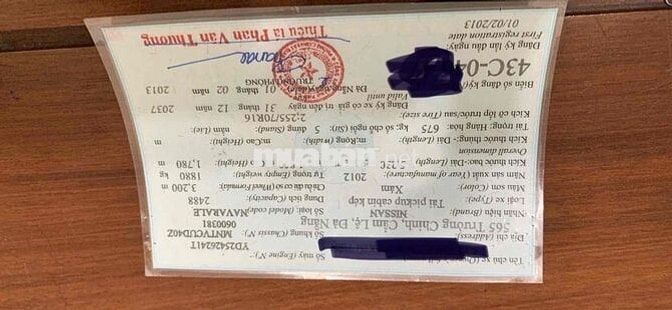 Tên chủ xe
Số máy (Engine N°): YD25426241T
Địa chỉ (Address)
Số khung (Chassis N°): MNTVCUD40Z
565 Trường Chinh, Cẩm Lệ, Đà Nẵng
0600381
Nhãn hiệu (Brand): NISSAN
Số loại (Model code): NAVARALE
Loại xe (Type): Tải pickup cabin kép
Dung tích (Capacity): 2488
Màu sơn (Color): Xám
Chiều dài cơ sở (Wheel formula) 3,200 m
Năm sản xuất (Year of manufacture) 2012
Tự trọng (Empty weight): 1880 kg
Kích thước bao: - Dài (Length)
Cao (Height) 1,780 m
Overall dimension
Kích thước thùng: - Dài (Length)
m; Rộng (width)
m; Cao (Height)
m
Tải trọng: Hàng hóa: 675 kg; Số chỗ ngồi (Sit): 5
đứng (Stand)
nằm (Lie):
Kích cỡ lốp trước/sau (Tire size): 2;255/70R16
Biển số đăng ký
Đăng ký xe có giá trị đến ngày 31 12 2037
43C-04
Valid until
Đà Nẵng, ngày 01 02 2013
Đăng ký lần đầu ngày:
TRƯỞNG PHÒNG
First registration date
01/02/2013
Thiếu tá Phan Văn Thương